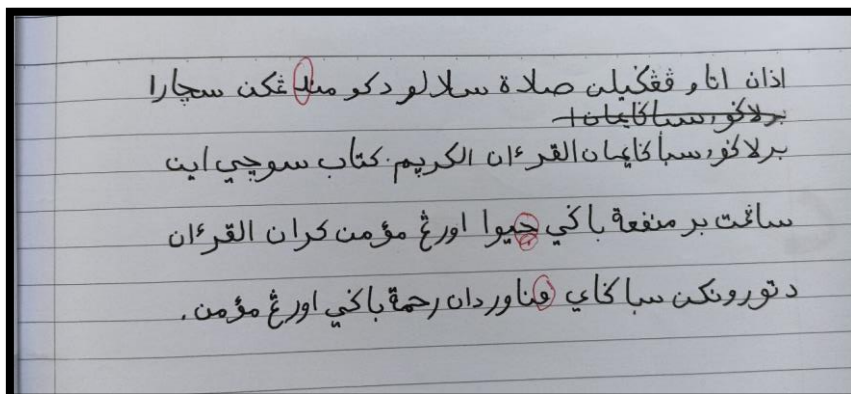 اذان اتاو ڤڠݢيلن صلاة سلالو دکومندڠکن سچارا
برلاکو، سباݢايمان ا
برلاکو، سباݢايمان القرءان الکريم. کتاب سوچي اين
ساڠت برمنفعة باݢي جيوا اورڠ مؤمن کران القرءان
دتورونکن سباݢاي ڤناور دان رحمة باݢي اورڠ مؤمن.